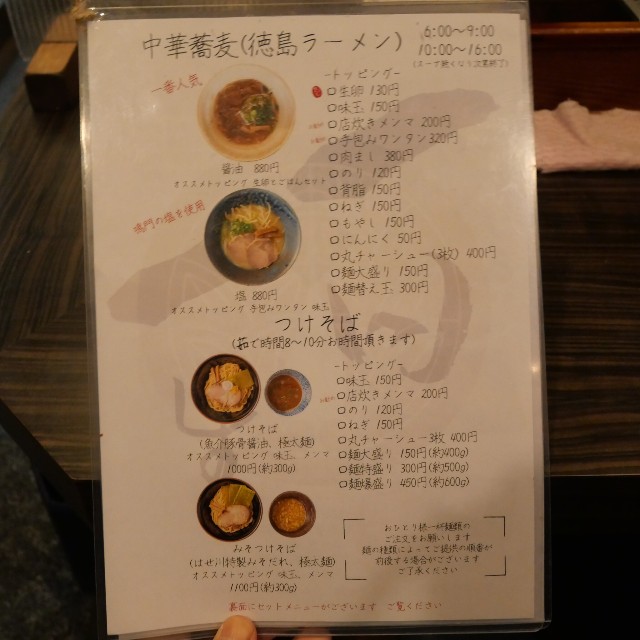 中華蕎麦(徳島ラーメン)
6:00～9:00
10:00～16:00
(スープ無くなり次第終了)
一番人気
醤油 880円
オススメトッピング 生卵とごはんセット
鳴門の塩を使用
塩 880円
オススメトッピング 手包みワンタン 味玉
-トッピング-
□生卵 130円
□味玉 150円
□店炊きメンマ 200円
□手包みワンタン320円
□肉まし 380円
□のり 120円
□背脂 150円
□ねぎ 150円
□もやし 150円
□にんにく 50円
□丸チャーシュー(3枚) 400円
□麺大盛り 150円
□麺替え玉 300円
つけそば
(茹で時間8～10分お時間頂きます)
つけそば
(魚介豚骨醤油、極太麺)
オススメトッピング 味玉、メンマ
1000円(約300g)
みそつけそば
(はせ川特製みそだれ、極太麺)
オススメトッピング 味玉、メンマ
1100円(約300g)
-トッピング-
□味玉 150円
□店炊きメンマ 200円
□のり 120円
□ねぎ 150円
□丸チャーシュー3枚 400円
□麺大盛り 150円(約400g)
□麺特盛り 300円(約500g)
□麺爆盛り 450円(約600g)
おひとり様一杯麺類の
ご注文をお願いします
麺の種類によってご提供の順番が
前後する場合がございます
ご了承ください
裏面にセットメニューがございます ご覧ください